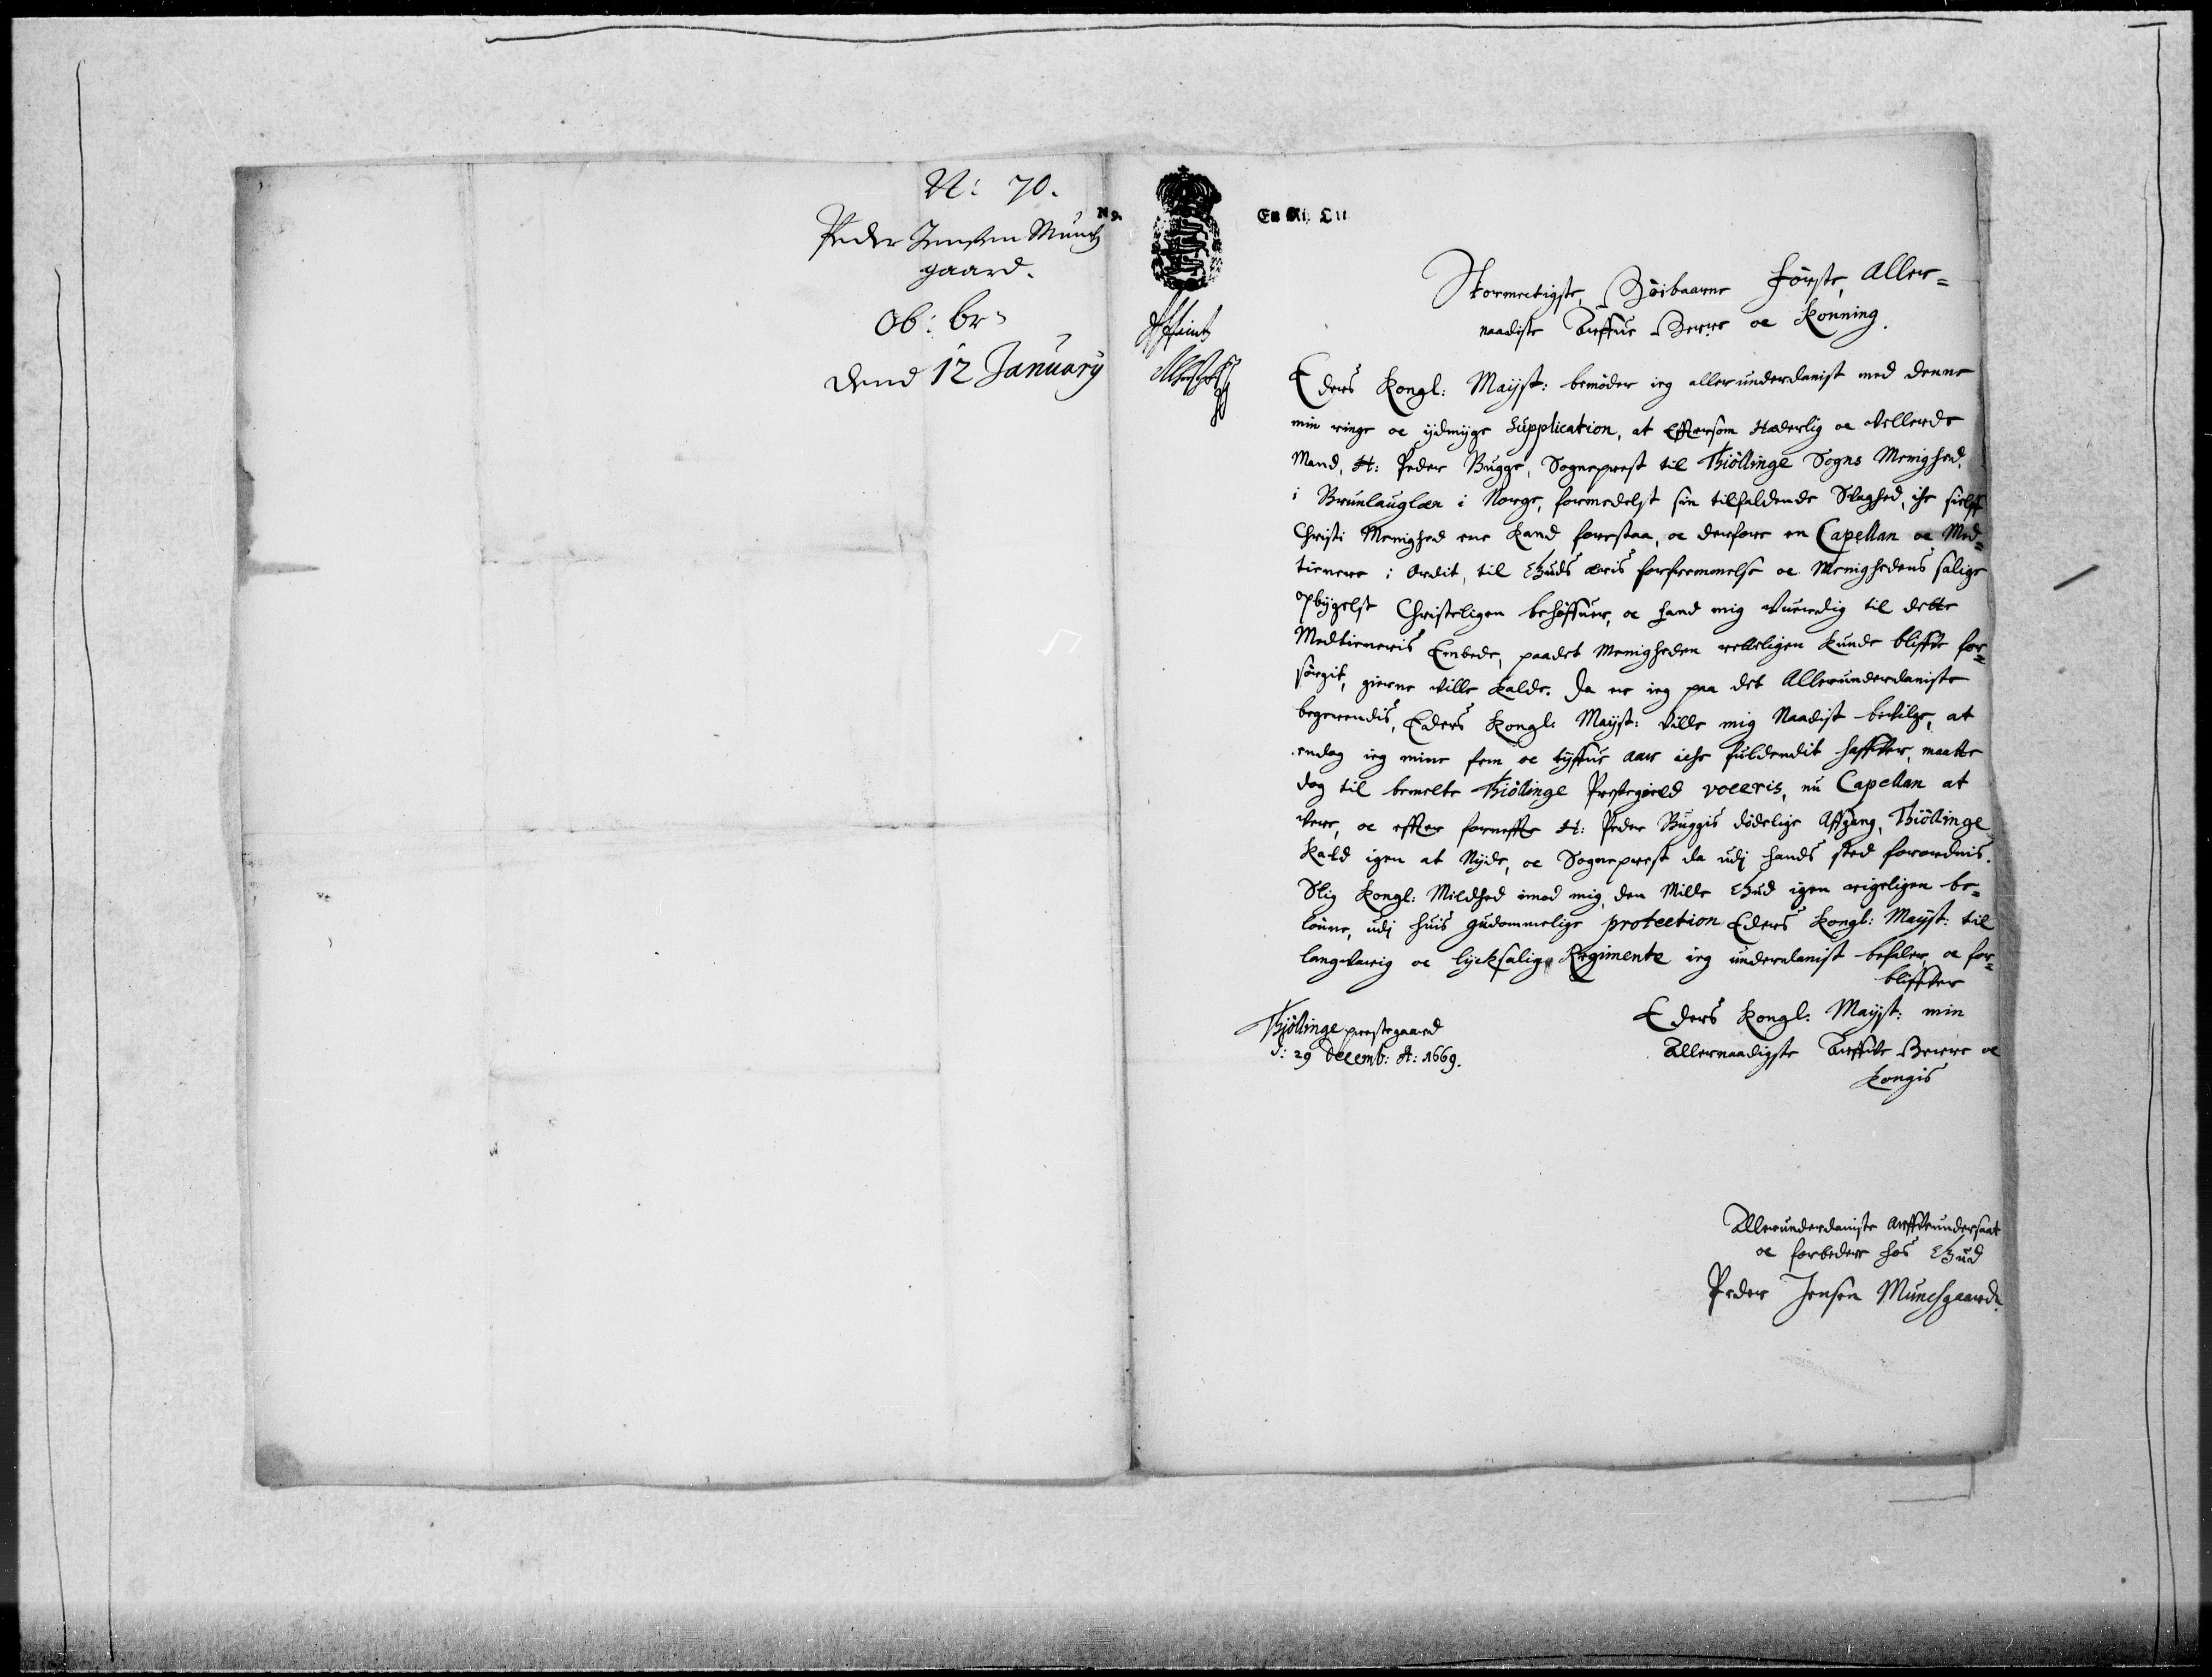 N: 70.
Peder Jensen Munch
gaard.
Ob: br:
dend 12 January
N 9.
En Ri:
Stormectigste, Høibaarne Første, Aller=
naadiste Arffue Herre oc Konning.
Eders Kongl: Mayst: bemøder ieg allerunderdanist med denne
min ringe oc ydmyge Supplication, at Effterson Hæderlig oc Vellerde
Mand, H: Peder Bugge, Sogneprest til Thiöllinge Sogns Menighed,
i Brunlauglæn i Norge, formedelst sin tilfaldende Svaghed, iche sielff
Christi Menighed ene kand forestaa, oc derfore en Capellan oc Med=
tienere i Ordit, til Guds æris forfremmelse oc Menighedens salige
opbygelse Christeligen behøffuer, oc hand mig Vuerdig til dette
Medtieneris Embede, paadet Menigheden retteligen kunde bliffve for=
sørgit, gierne ville kalde. Da er ieg paa det Allerunderdaniste
begerendis, Eders Kongl: Mayst: ville mig Naadist bevilge, at
endog ieg mine fem oc tyffue aar iche fuldendit haffver, maatte
dog til bemelte Thiöllinge Prestegield voceris, nu Capellan at
vere, oc effter forneffte H: Peder Buggis dødelige Affgang, Thiöllinge
Kald igen at Nyde, oc Sogneprest da udj hands sted forordnis.
Slig Kongl: Mildhed imod mig, den Milde Gud igen rigeligen be=
lönne, udj huis gudommelige protection Eders Kongl: Mayst: til
langvarig oc lycksalige Regimente ieg underdanist befaler, oc for=
bliffver
Thjöllinge prestegaard
d: 29 Decemb: A: 1669.
Eders Kongl: Mayst: min
Allernaadigste Arffve Herre oc
Kongis
Allerunderdaniste Arffveundersaat
oc forbedere hos Gud
Peder Jensen Munchgaard.